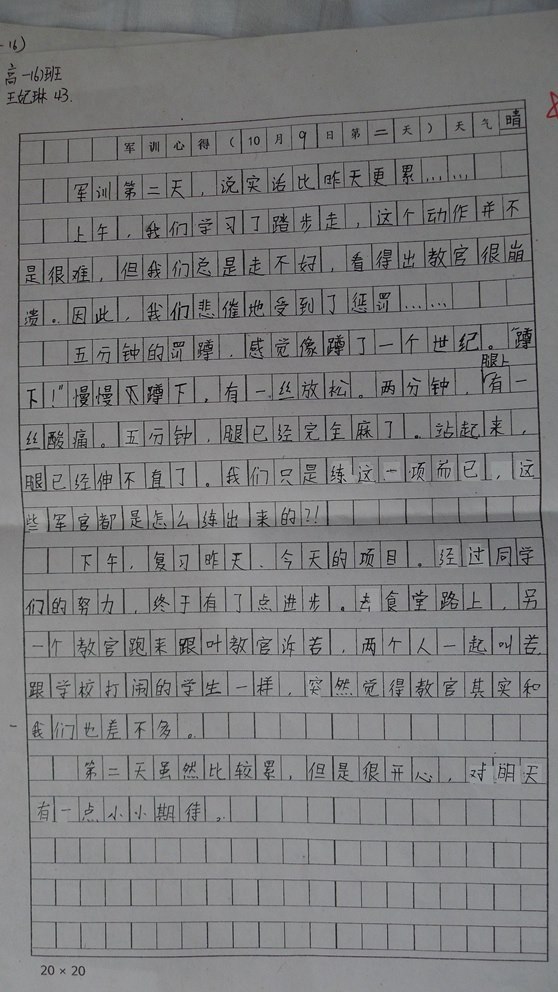 -16)
高一(6)班
王妃琳 43.
军训心得(10月9日第二天)天气晴
军训第二天,说实话比昨天更累……
上午,我们学习了踏步走,这个动作并不
是很难,但我们总是走不好,看得出教官很崩
溃。因此,我们悲催地受到了惩罚……
五分钟的罚蹲,感觉像蹲了一个世纪。“蹲
下!”慢慢蹲下,有一丝放松。两分钟,腿上有一
丝酸痛。五分钟,腿已经完全麻了。站起来,
腿已经伸不直了。我们只是练这一项而已,这
些军官都是怎么练出来的?!
下午,复习昨天、今天的项目。经过同学
们的努力,终于有了点进步。去食堂路上,另
一个教官跑来跟叶教官诉苦,两个人一起叫苦.
跟学校打闹的学生一样,突然觉得教官其实和
我们也差不多。
第二天虽然比较累,但是很开心,对明天
有一点小小期待。
20 × 20